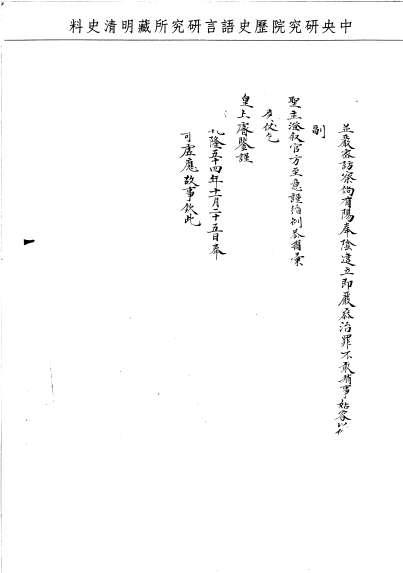 中央研究院歷史語言研究所藏明清史料
並嚴密訪察倘有陽奉陰違立即嚴參治罪不敢稍事姑容以
副
聖主澄叙官方至意謹循例恭摺彙
奏伏乞
皇上睿鑒謹
奏
乾隆五十四年十一月二十五日奉
可虛應故事欽此